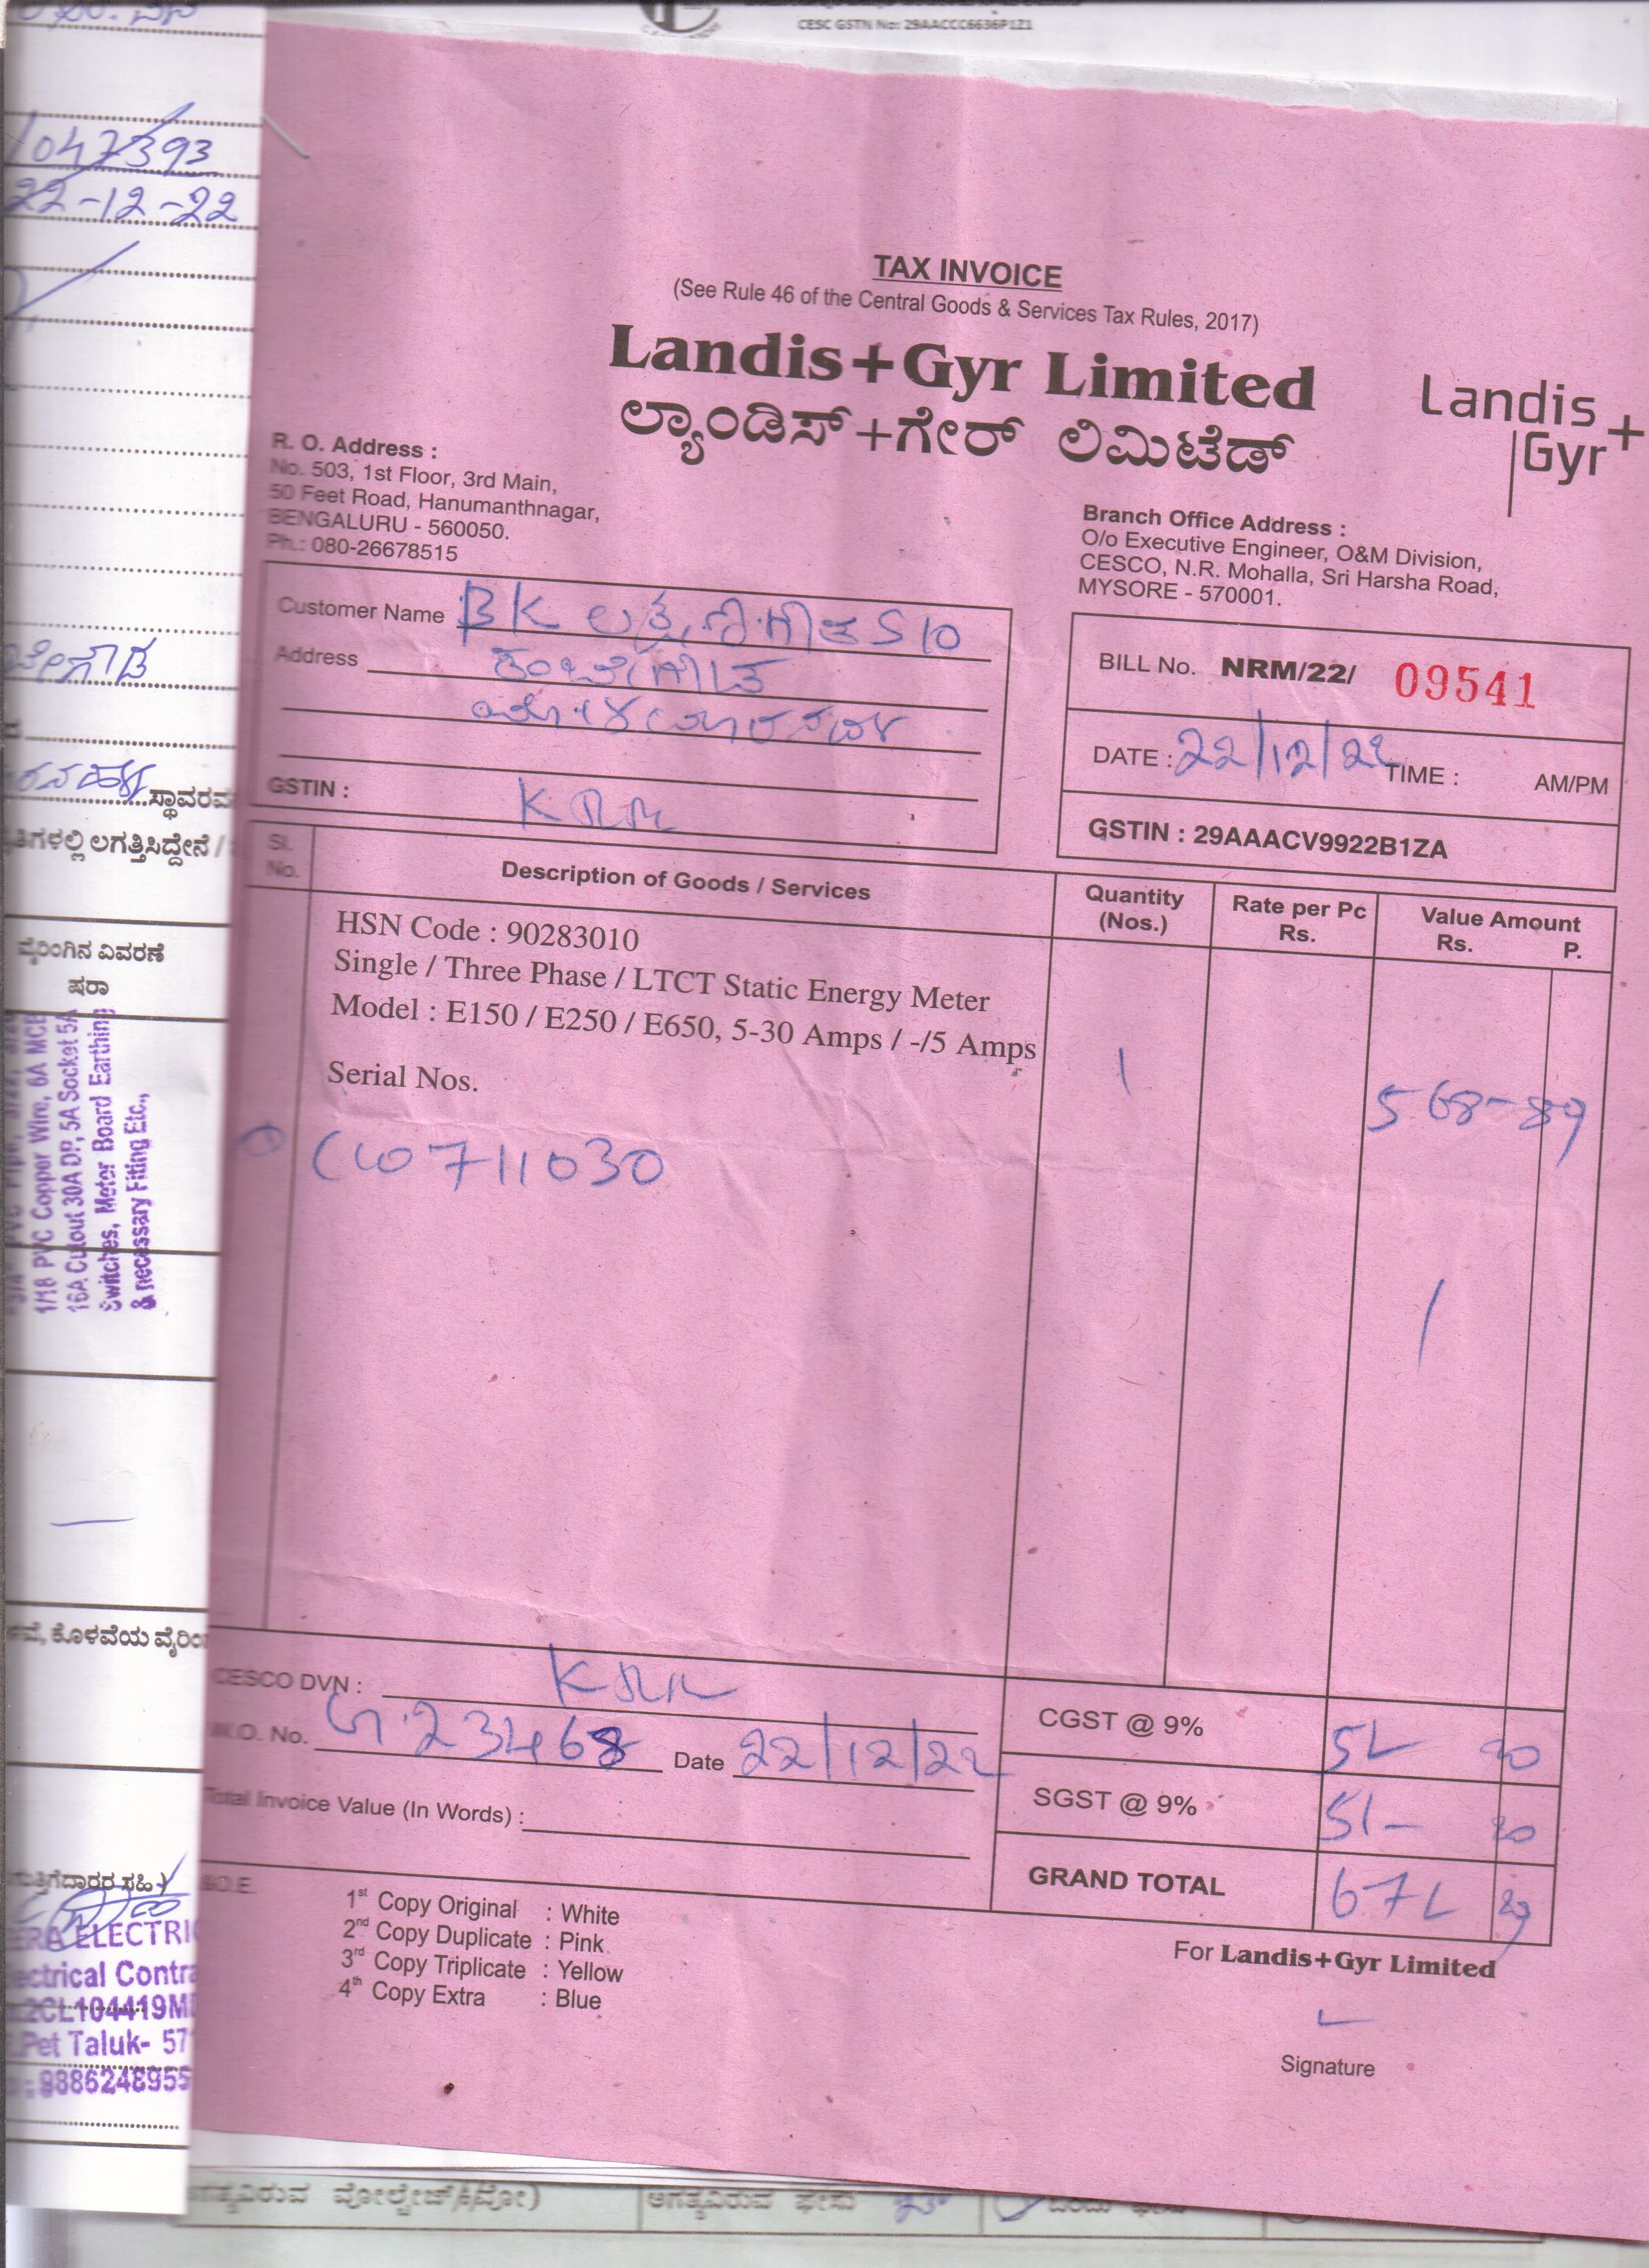 CESC GSTN No: 29AACCC6636P1Z1
1047393
22-12-22
ಸ್ಥಾವರವ
ಲಗತ್ತಿಸಿದ್ದೇನೆ /
ವೈರಿಂಗಿನ ವಿವರಣೆ
ಷರಾ
1/18 PVC Copper Wire, 6A MCB
16A Cutout 30A DP, 5A Socket 5A
Switches, Meter Board Earthing
& necessary Fiting Etc.,
ಕೊಳವೆಯ ವೈರಿಂಗ
ಸಹಿ )
ERA ELECTRIC
ectrical Contra
2CL104419M
Pet Taluk- 57
9886248955
TAX INVOICE
(See Rule 46 of the Central Goods & Services Tax Rules, 2017)
Landis+Gyr Limited
ಲ್ಯಾಂಡಿಸ್+ಗೇರ್ ಲಿಮಿಟೆಡ್
Landis+
Gyr
R. O. Address :
No. 503, 1st Floor, 3rd Main,
50 Feet Road, Hanumanthnagar,
BENGALURU - 560050.
Ph.: 080-26678515
Branch Office Address :
O/o Executive Engineer, O&M Division,
CESCO, N.R. Mohalla, Sri Harsha Road,
MYSORE - 570001.
Customer Name BK
Address
GSTIN :
BILL No. NRM/22/ 09541
DATE : 22/12/22 TIME : AM/PM
GSTIN : 29AAACV9922B1ZA
Sl. No. Description of Goods / Services Quantity (Nos.) Rate per Pc Rs. Value Amount Rs. P.
HSN Code : 90283010
Single / Three Phase / LTCT Static Energy Meter
Model : E150 / E250 / E650, 5-30 Amps / -/5 Amps
Serial Nos. 1 568-89
711030
CESCO DVN :
W.O. No. 23468 Date 22/12/22
Total Invoice Value (In Words) :
CGST @ 9% 51 20
SGST @ 9% 51- 20
GRAND TOTAL 671 29
1st Copy Original : White
2nd Copy Duplicate : Pink
3rd Copy Triplicate : Yellow
4th Copy Extra : Blue
For Landis+Gyr Limited
Signature